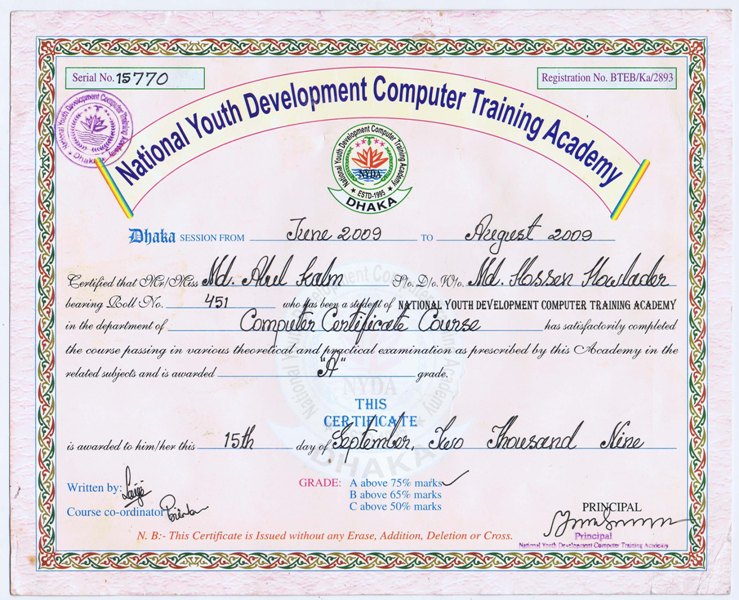 Serial No. 15770
Registration No. BTEB/Ka/2893
National Youth Development Computer Training Academy
National Youth Development Computer Training Academy
Dhaka
National Youth Development Computer Training Academy
NYDA
ESTD-1995
DHAKA
Dhaka SESSION FROM June 2009 TO August 2009
Certified that Mr/Miss Md. Abul Kalm S/o. D/o. W/o. Md. Hossen Howlader
bearing Roll No. 451 who has been a student of NATIONAL YOUTH DEVELOPMENT COMPUTER TRAINING ACADEMY
in the department of Computer Certificate Course has satisfactorily completed
the course passing in various theoretical and practical examination as prescribed by this Academy in the
related subjects and is awarded "A" grade.
THIS
CERTIFICATE
is awarded to him/her this 15th day of September, Two Thousand Nine
Written by:
Course co-ordinator
GRADE: A above 75% marks
B above 65% marks
C above 50% marks
PRINCIPAL
Principal
National Youth Development Computer Training Academy
N. B:- This Certificate is Issued without any Erase, Addition, Deletion or Cross.